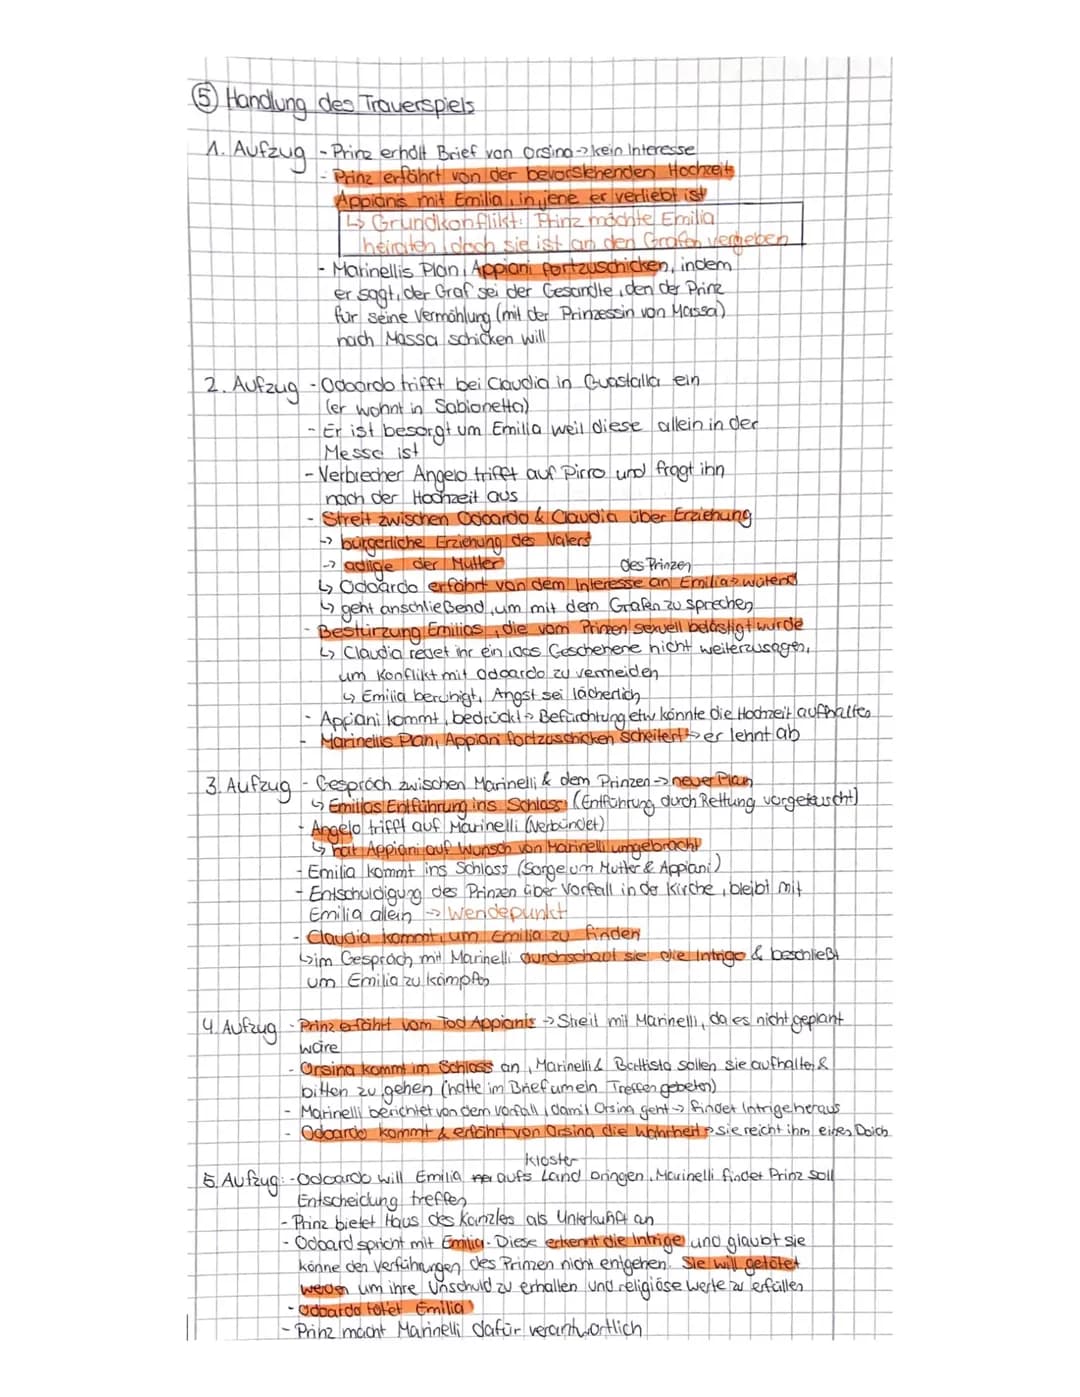 ⑤ Handlung des Trauerspiels
1. Aufzug - Prinz erhält Brief von Orsina -> kein Interesse
- Prinz erfährt von der bevorstehenden Hochzeit
Appianis mit Emilia, in jene er verliebt ist
↳ Grundkonflikt: Prinz möchte Emilia
heiraten, doch sie ist an den Grafen vergeben
- Marinellis Plan, Appiani fortzuschicken, indem
er sagt, der Graf sei der Gesandte, den der Prinz
für seine Vermählung (mit der Prinzessin von Massa)
nach Massa schicken will
2. Aufzug - Odoardo trifft bei Claudia in Guastalla ein
(er wohnt in Sabionetta)
- Er ist besorgt um Emilia weil diese allein in der
Messe ist
- Verbrecher Angelo trifft auf Pirro und fragt ihn
nach der Hochzeit aus
- Streit zwischen Odoardo & Claudia über Erziehung
-> bürgerliche Erziehung des Vaters
-> adlige der Mutter
des Prinzen
↳ Odoardo erfährt von dem Interesse an Emilia -> wütend
↳ geht anschließend, um mit dem Grafen zu sprechen
- Bestürzung Emilias, die vom Prinzen sexuell belästigt wurde
↳ Claudia redet ihr ein, das Geschehene nicht weiterzusagen,
um Konflikt mit Odoardo zu vermeiden
↳ Emilia beruhigt, Angst sei lächerlich
- Appiani kommt, bedrückt -> Befürchtung etw könnte die Hochzeit aufhalten
- Marinellis Plan, Appiani fortzuschicken scheitert -> er lehnt ab
3. Aufzug - Gespräch zwischen Marinelli & dem Prinzen -> neuer Plan
↳ Emilias Entführung ins Schloss (Entführung durch Rettung vorgetäuscht)
- Angelo trifft auf Marinelli (Verbündet)
↳ hat Appiani auf Wunsch von Marinelli umgebracht
- Emilia kommt ins Schloss (Sorge um Mutter & Appiani)
- Entschuldigung des Prinzen über Vorfall in der Kirche, bleibt mit
Emilia allein -> Wendepunkt
- Claudia kommt, um Emilia zu finden
↳ im Gespräch mit Marinelli durchschaut sie die Intrige & beschließt
um Emilia zu kämpfen
4. Aufzug - Prinz erfährt vom Tod Appianis -> Streit mit Marinelli, da es nicht geplant
wäre
- Orsina kommt im Schloss an, Marinelli & Battista sollen sie aufhalten &
bitten zu gehen (hatte im Brief um ein Treffen gebeten)
- Marinelli berichtet von dem Vorfall, damit Orsina geht -> findet Intrige heraus
- Odoardo kommt & erfährt von Orsina die Wahrheit -> sie reicht ihm einen Dolch
Kloster
5. Aufzug: - Odoardo will Emilia aufs Land bringen, Marinelli findet Prinz soll
Entscheidung treffen
- Prinz bietet Haus des Kanzles als Unterkunft an
- Odoard spricht mit Emilia. Diese erkennt die Intrige und glaubt sie
könne den Verführungen des Prinzen nicht entgehen. Sie will getötet
werden um ihre Unschuld zu erhalten und religiöse Werte zu erfüllen
- Odoardo tötet Emilia
- Prinz macht Marinelli dafür verantwortlich